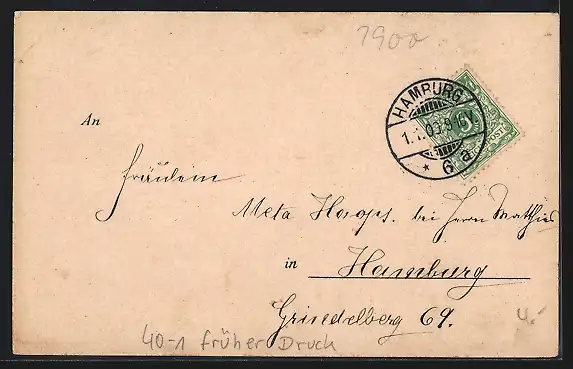 1900
HAMBURG
1.1.00.8-9V.
* 6 a.
An
Fräulein
Meta Haops. bei Herrn Matthies
in Hamburg
Grindelberg 69.
4.-
40-1 früher Druck